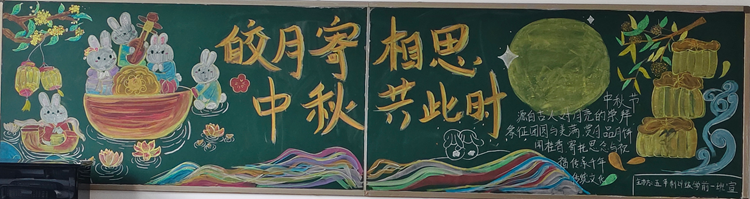 皎月寄相思
中秋共此时
中秋节
源自古人对月亮的崇拜
象征团圆与美满,赏月品月饼
阖桂香寄托思念与祝
传统文化